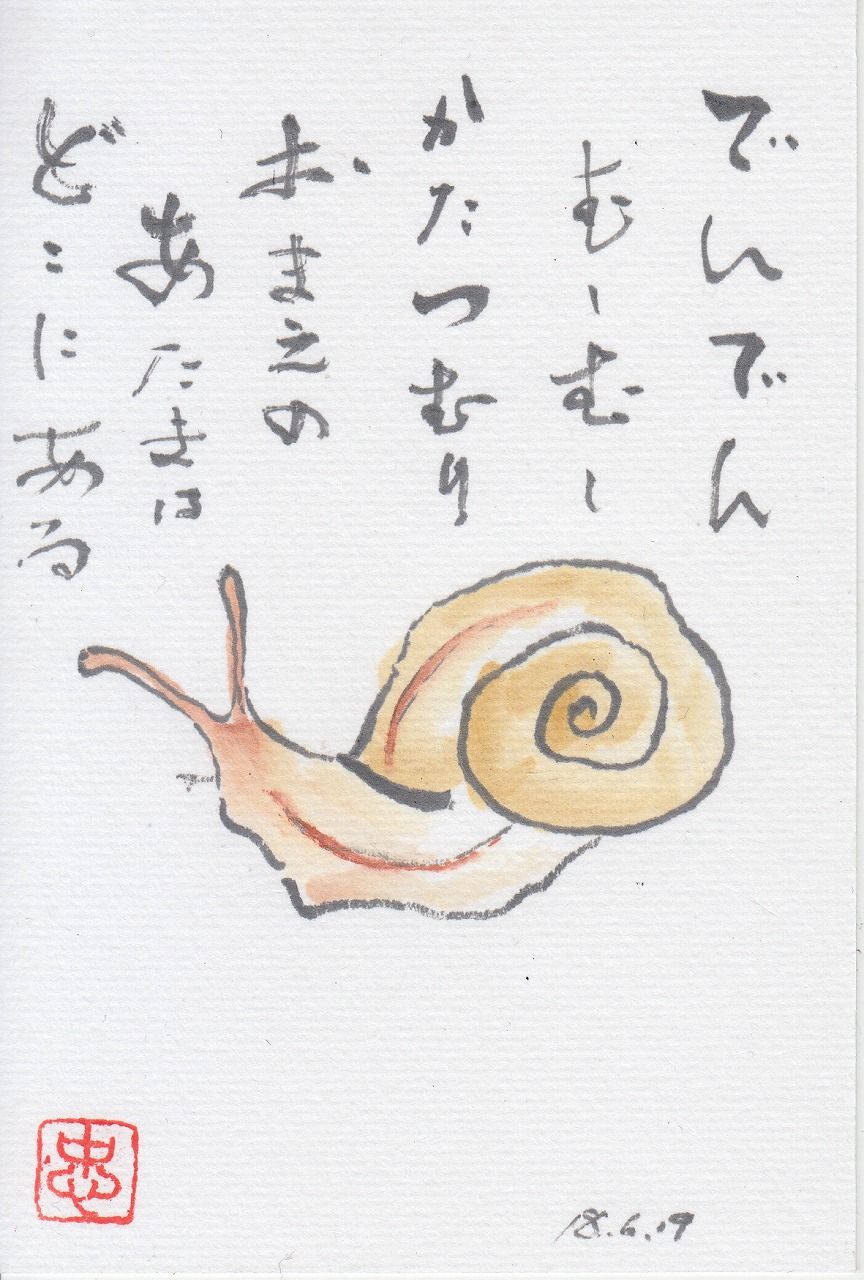 でんでん
むーむー
かたつむり
おまえの
あたまは
どこにある
忠
18.6.19